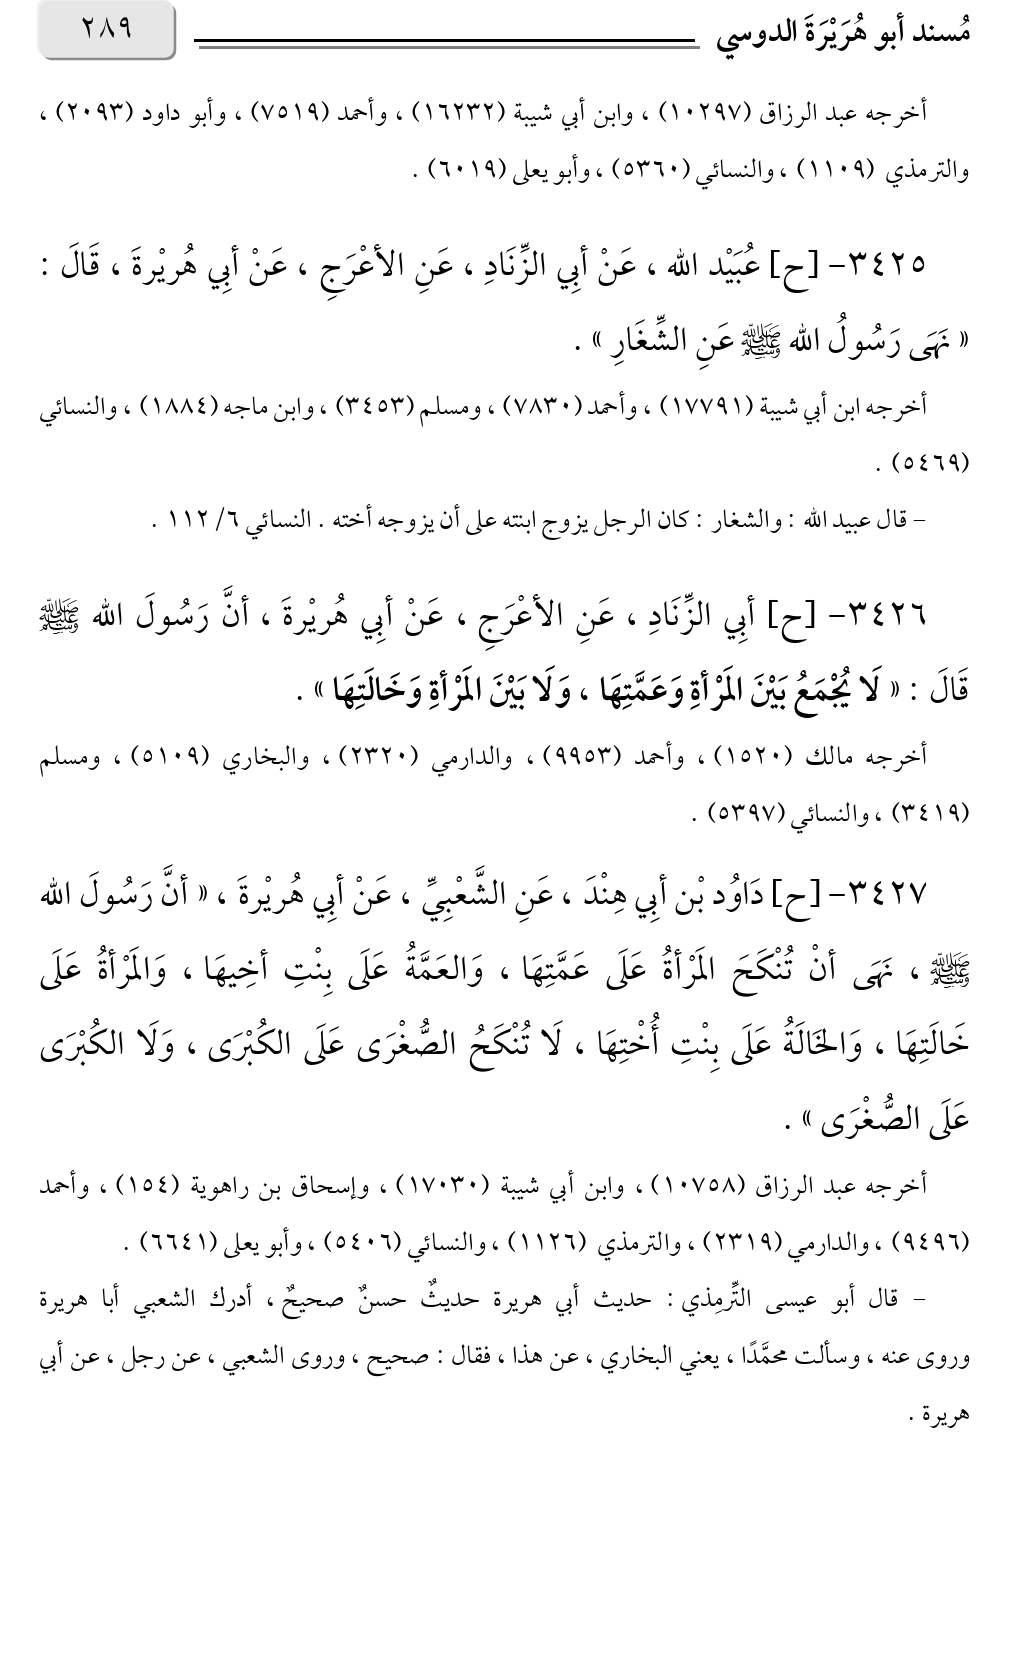 مُسند أبو هُرَيْرَةَ الدوسي
٢٨٩
أخرجه عبد الرزاق (١٠٢٩٧) ، وابن أبي شيبة (١٦٢٣٢) ، وأحمد (٧٥١٩) ، وأبو داود (٢٠٩٣) ،
والترمذي (١١٠٩) ، والنسائي (٥٣٦٠) ، وأبو يعلى (٦٠١٩) .
٣٤٢٥- [ح] عُبَيْد الله ، عَنْ أبِي الزِّنَادِ ، عَنِ الأعْرَجِ ، عَنْ أبِي هُريْرةَ ، قَالَ :
« نَهَى رَسُولُ الله ﷺ عَنِ الشِّغَارِ » .
أخرجه ابن أبي شيبة (١٧٧٩١) ، وأحمد (٧٨٣٠) ، ومسلم (٣٤٥٣) ، وابن ماجه (١٨٨٤) ، والنسائي
(٥٤٦٩) .
– قال عبيد الله : والشغار : كان الرجل يزوج ابنته على أن يزوجه أخته . النسائي ٦/ ١١٢ .
٣٤٢٦- [ح] أبِي الزِّنَادِ ، عَنِ الأعْرَجِ ، عَنْ أبِي هُريْرةَ ، أنَّ رَسُولَ الله ﷺ
قَالَ : « لَا يُجْمَعُ بَيْنَ المَرْأةِ وَعَمَّتِهَا ، وَلَا بَيْنَ المَرْأةِ وَخَالَتِهَا » .
أخرجه مالك (١٥٢٠) ، وأحمد (٩٩٥٣) ، والدارمي (٢٣٢٠) ، والبخاري (٥١٠٩) ، ومسلم
(٣٤١٩) ، والنسائي (٥٣٩٧) .
٣٤٢٧- [ح] دَاوُد بْن أبِي هِنْدَ ، عَنِ الشَّعْبِيِّ ، عَنْ أبِي هُريْرةَ ، « أنَّ رَسُولَ الله
ﷺ ، نَهَى أنْ تُنْكَحَ المَرْأةُ عَلَى عَمَّتِهَا ، وَالعَمَّةُ عَلَى بِنْتِ أخِيهَا ، وَالمَرْأةُ عَلَى
خَالَتِهَا ، وَالخَالَةُ عَلَى بِنْتِ أُخْتِهَا ، لَا تُنْكَحُ الصُّغْرَى عَلَى الكُبْرَى ، وَلَا الكُبْرَى
عَلَى الصُّغْرَى » .
أخرجه عبد الرزاق (١٠٧٥٨) ، وابن أبي شيبة (١٧٠٣٠) ، وإسحاق بن راهوية (١٥٤) ، وأحمد
(٩٤٩٦) ، والدارمي (٢٣١٩) ، والترمذي (١١٢٦) ، والنسائي (٥٤٠٦) ، وأبو يعلى (٦٦٤١) .
– قال أبو عيسى التِّرمِذي : حديث أبي هريرة حديثٌ حسنٌ صحيحٌ ، أدرك الشعبي أبا هريرة
وروى عنه ، وسألت محمَّدًا ، يعني البخاري ، عن هذا ، فقال : صحيح ، وروى الشعبي ، عن رجل ، عن أبي
هريرة .